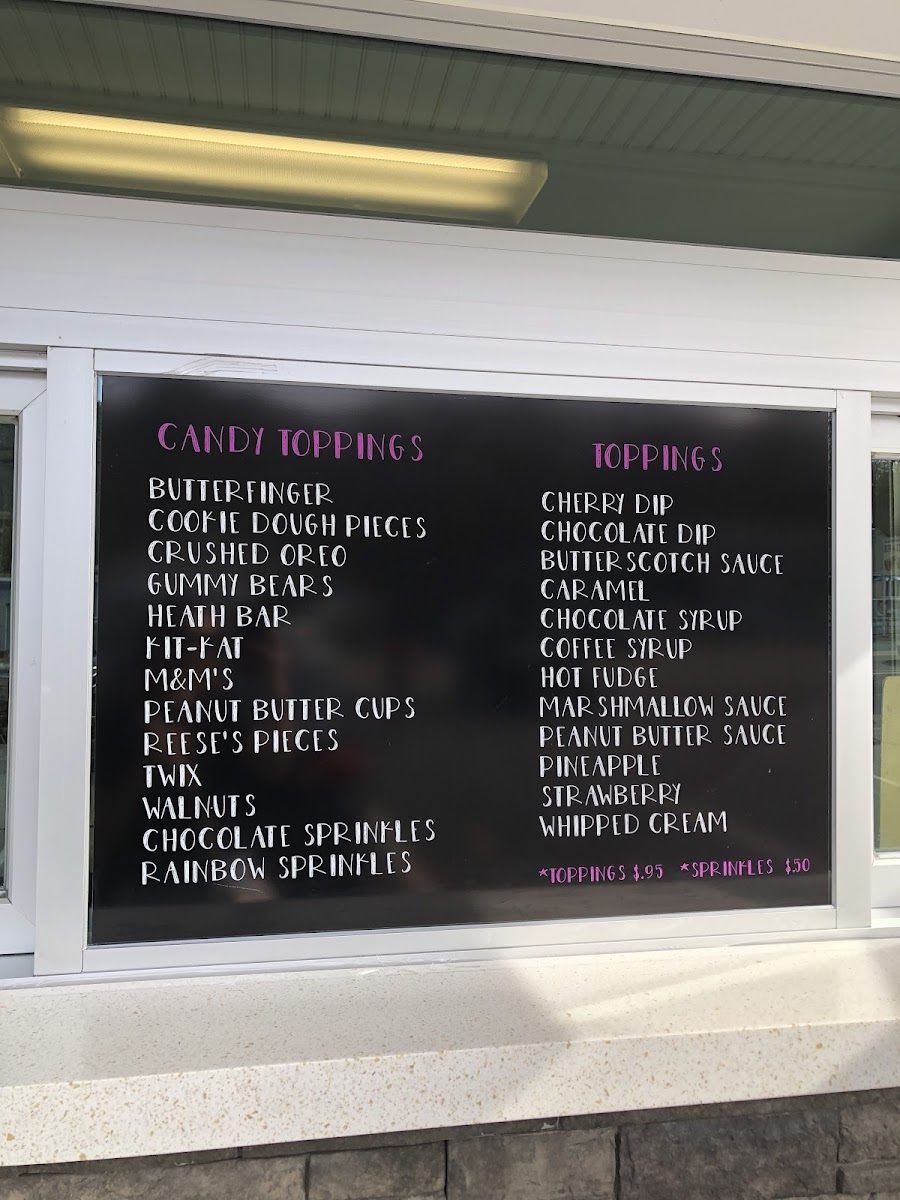 CANDY TOPPINGS
BUTTERFINGER
COOKIE DOUGH PIECES
CRUSHED OREO
GUMMY BEARS
HEATH BAR
KIT-KAT
M&M'S
PEANUT BUTTER CUPS
REESE'S PIECES
TWIX
WALNUTS
CHOCOLATE SPRINKLES
RAINBOW SPRINKLES
TOPPINGS
CHERRY DIP
CHOCOLATE DIP
BUTTERSCOTCH SAUCE
CARAMEL
CHOCOLATE SYRUP
COFFEE SYRUP
HOT FUDGE
MARSHMALLOW SAUCE
PEANUT BUTTER SAUCE
PINEAPPLE
STRAWBERRY
WHIPPED CREAM
*TOPPINGS $.95 *SPRINKLES $.50